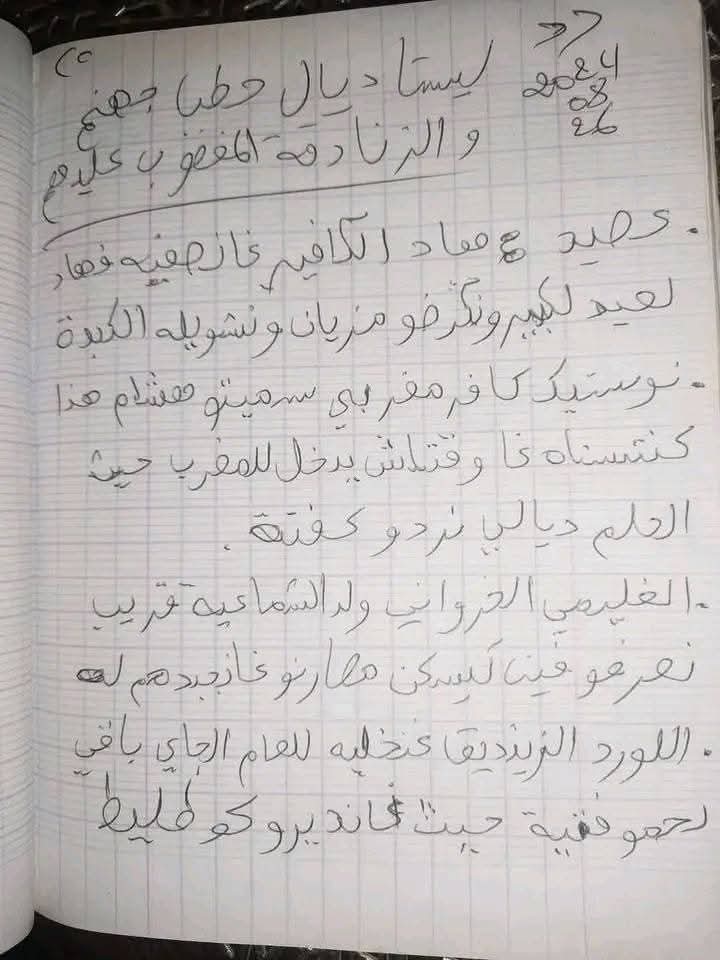 2024
08
26
ليستا ديال حطب جهنم
والزنادقة المغضوب عليهم
. عصيد ع معاد الكافير غانصفيه فهاد
لعيد لكبير ونگرضو مزيان ونشويله الكبدة
. نوستيك كافر مغربي سميتو هشام هذا
كنتسناه غا وقتاش يدخل للمغرب حيث
الحلم ديالي نردو كفتة .
. الغليمي الخرواني ولد الشماعية قريب
نعرفو فين كيسكن مصارنو غانجبدهم له
. اللورد الزينديق غنخليه للعام الجاي باقي
لحمو فتية حيت غانديرو كوطليط